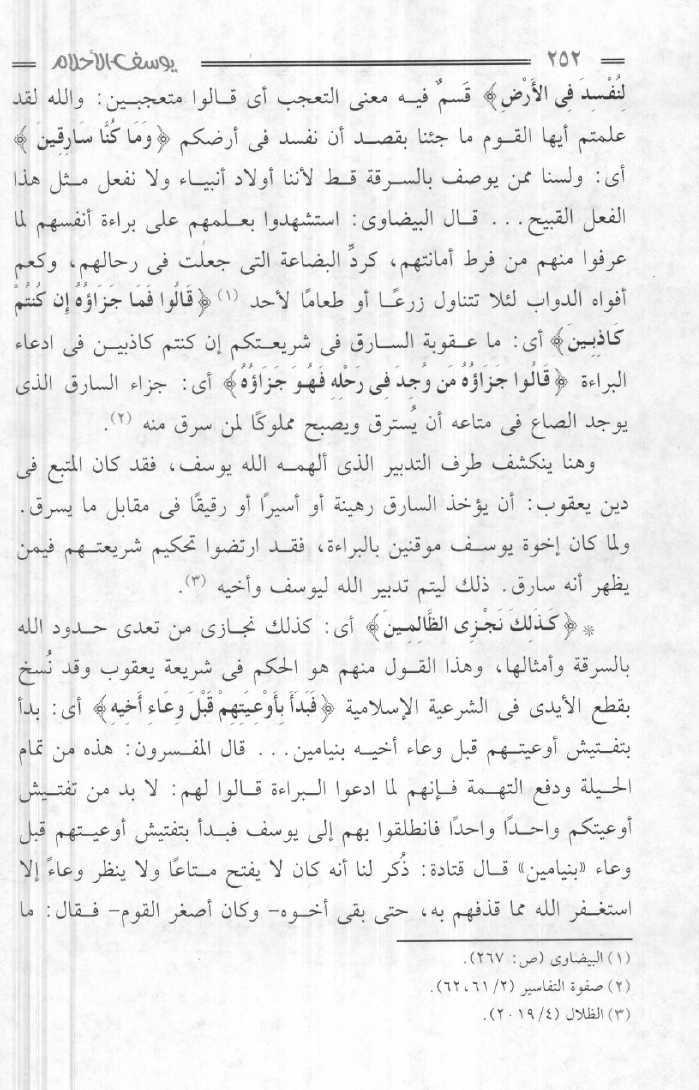 ٢٥٢ يوسف الأحلام
لِنُفْسِدَ فِى الأَرْضِ﴾ قَسمٌ فيه معنى التعجب أى قـالوا متعجبـين: والله لقد
علمتم أيها القـوم ما جئنا بقصـد أن نفسد فى أرضكم ﴿وَمَا كُنَّا سَارِقِينَ﴾
أى: ولسنا ممن يوصف بالسـرقة قـط لأننا أولاد أنبيـاء ولا نفعل مـثل هذا
الفعل القبيح... قـال البيضاوى: استشهدوا بعـلمهم على براءة أنفسهم لما
عرفوا منهم من فرط أمانتهم، كردِّ البضاعة التى جعلت فى رحالهم، وكعم
أفواه الدواب لئلا تتناول زرعًـا أو طعامًا لأحد (١) ﴿قَالُوا فَمَا جَزَاؤُهُ إِن كُنتُمْ
كَاذِبِينَ﴾ أى: ما عـقوبة السـارق فى شريعـتكم إن كنتم كاذبيـن فى ادعاء
البراءة ﴿قَالُوا جَزَاؤُهُ مَن وُجِدَ فِى رَحْلِهِ فَهُوَ جَزَاؤُهُ﴾ أى: جزاء السارق الذى
يوجد الصاع فى متاعه أن يُسترق ويصبح مملوكًا لمن سرق منه (٢).
وهنا ينكشف طرف التدبير الذى ألهمـه الله يوسف، فقد كان المتبع فى
دين يعقوب: أن يؤخذ السارق رهينة أو أسيرًا أو رقيقًا فى مقابل ما يسرق.
ولما كان إخوة يوسـف موقنين بالبراءة، فقـد ارتضوا تحكيم شريعتـهم فيمن
يظهر أنه سارق. ذلك ليتم تدبير الله ليوسف وأخيه (٣).
* ﴿كَذَلِكَ نَجْزِى الظَّالِمِينَ﴾ أى: كذلك نجـازى من تعدى حـدود الله
بالسرقة وأمثالها، وهذا القـول منهم هو الحكم فى شريعة يعقوب وقد نُسخ
بقطع الأيدى فى الشرعية الإسلامية ﴿فَبَدَأَ بِأَوْعِيَتِهِمْ قَبْلَ وِعَاءِ أَخِيهِ﴾ أى: بدأ
بتفـتيش أوعيتـهم قبل وعاء أخيـه بنيامين... قال المفـسرون: هذه من تمام
الحـيلة ودفع التهـمة فـإنهم لما ادعوا الـبراءة قـالوا لهم: لا بد من تفتـيش
أوعيتكم واحـدًا واحدًا فانطلقوا بهم إلى يوسف فبـدأ بتفتيش أوعيـتهم قبل
وعاء «بنيامين» قال قتادة: ذُكر لنا أنه كان لا يفتح مـتاعًا ولا ينظر وعاءً إلا
استغـفر الله مما قذفهم به، حتى بقى أخـوه- وكان أصغر القوم- فـقال: ما
(١) البيضاوى (ص: ٢٦٧).
(٢) صفوة التفاسير (٢/ ٦١، ٦٢).
(٣) الظلال (٤/ ٢٠١٩).